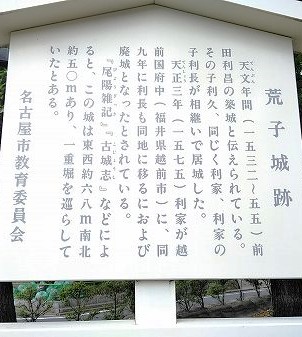 荒子城跡
天文年間（一五三二～五五）前
田利昌の築城と伝えられている。
その子利久、同じく利家、利家の
子利長が相継いで居城した。
天正三年（一五七五）利家が越
前国府中（福井県越前市）に、同
九年に利長も同地に移るにおよび
廃城となったとされている。
『尾陽雑記』『古城志』などによ
ると、この城は東西約六八m南北
約五〇mあり、一重堀を巡らして
いたとある。
名古屋市教育委員会